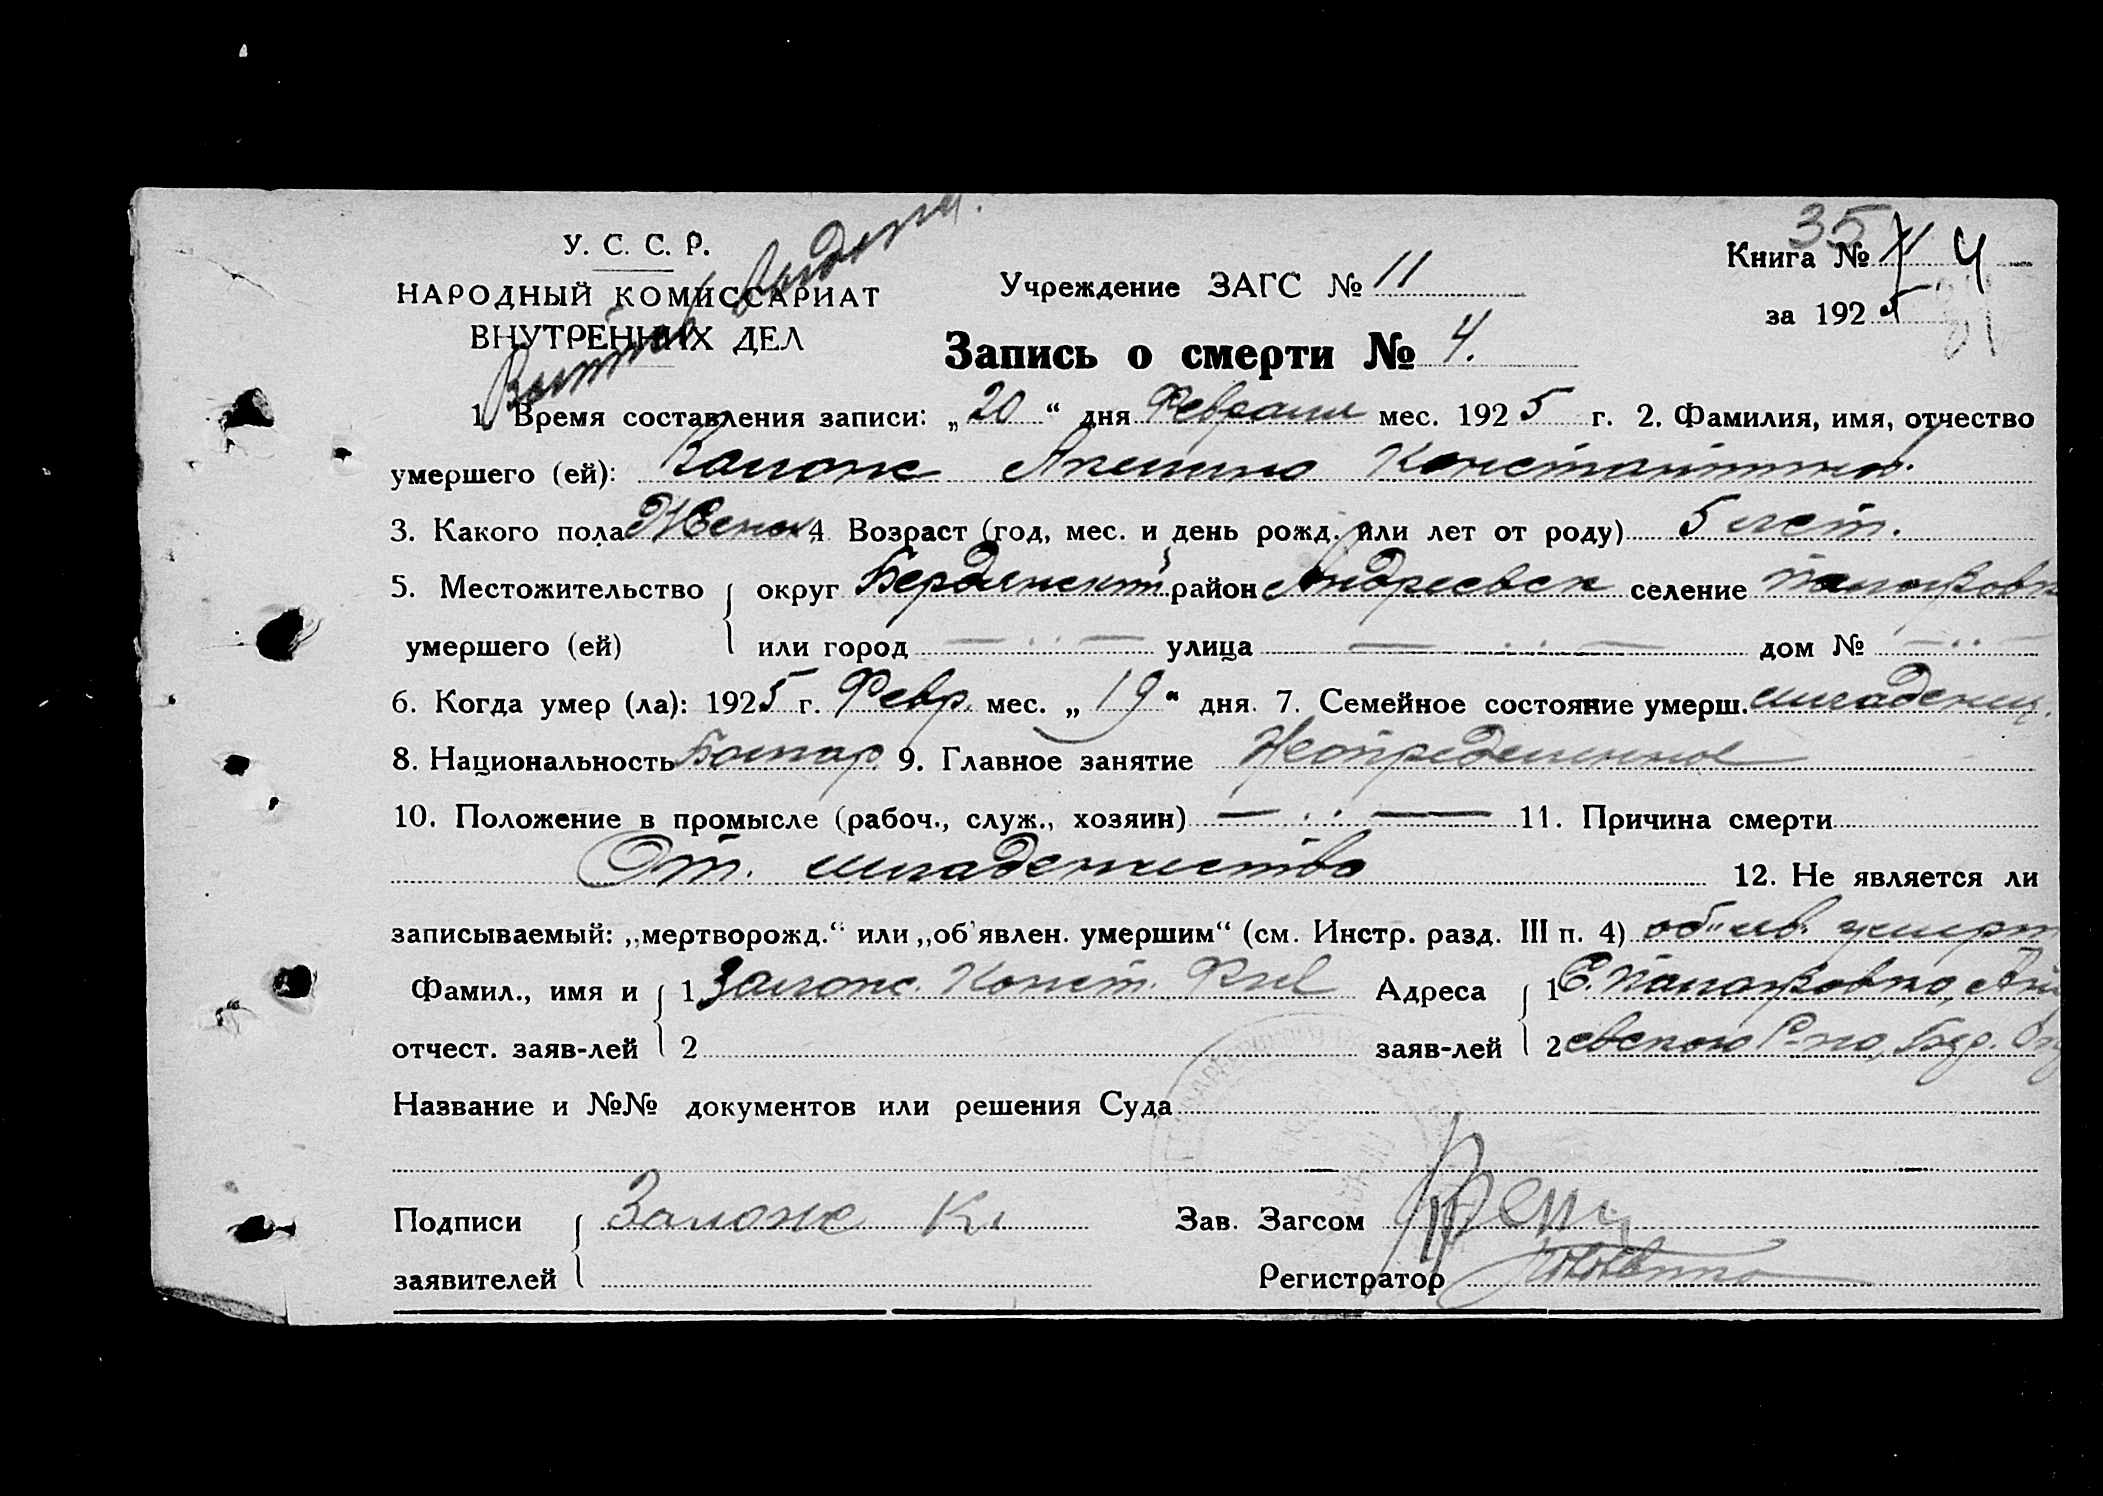 У. С. С. Р.
НАРОДНЫЙ КОМИССАРИАТ
ВНУТРЕННИХ ДЕЛ
Выпись выдана.
Учреждение ЗАГС № 11
35
Книга № 4
за 1925
Запись о смерти № 4.
1. Время составления записи: „20“ дня Февраля мес. 1925 г. 2. Фамилия, имя, отчество
умершего (ей): Залонс Константинов.
3. Какого пола Женск 4 Возраст (год, мес. и день рожд. или лет от роду) 5 лет.
5. Местожительство округ Бердянский район Андреевск селение
умершего (ей) или город — . . — улица — . . — дом № — . . —
6. Когда умер (ла): 1925 г. Февр. мес. „19“ дня. 7. Семейное состояние умерш. младенец.
8. Национальность Болгар 9. Главное занятие Неопределенное
10. Положение в промысле (рабоч., служ., хозяин) — . . — 11. Причина смерти
От. младенчества 12. Не является ли
записываемый: „мертворожд.“ или „об'явлен. умершим“ (см. Инстр. разд. III п. 4) об"яв. умерш
Фамил., имя и 1 Залонс. Конст. Адреса 1 С.
отчест. заяв-лей 2 заяв-лей 2 евского Р-на, Бер.
Название и №№ документов или решения Суда
Подписи Залонс К. Зав. Загсом
заявителей Регистратор